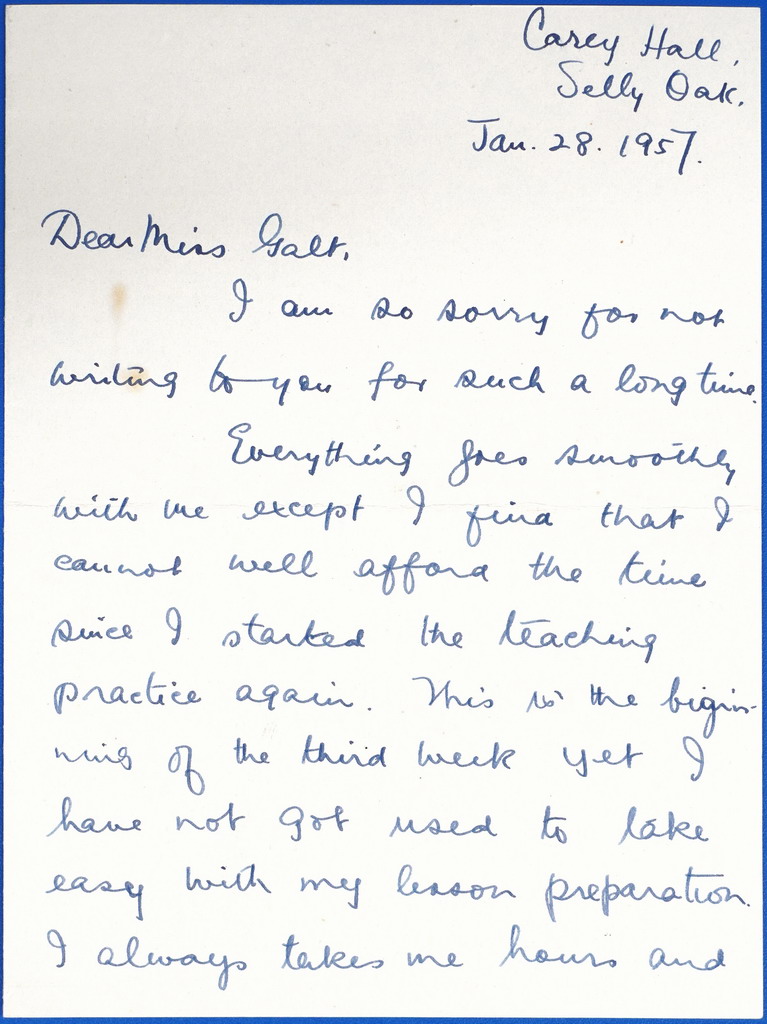 Carey Hall,
Selly Oak.
Jan. 28. 1957.
Dear Miss Galt,
I am so sorry for not
writing to you for such a long time.
Everything goes smoothly
with me except I find that I
cannot well afford the time
since I started the teaching
practice again. This is the bigin-
ning of the third week yet I
have not got used to take
easy with my lesson preparation.
I always takes me hours and